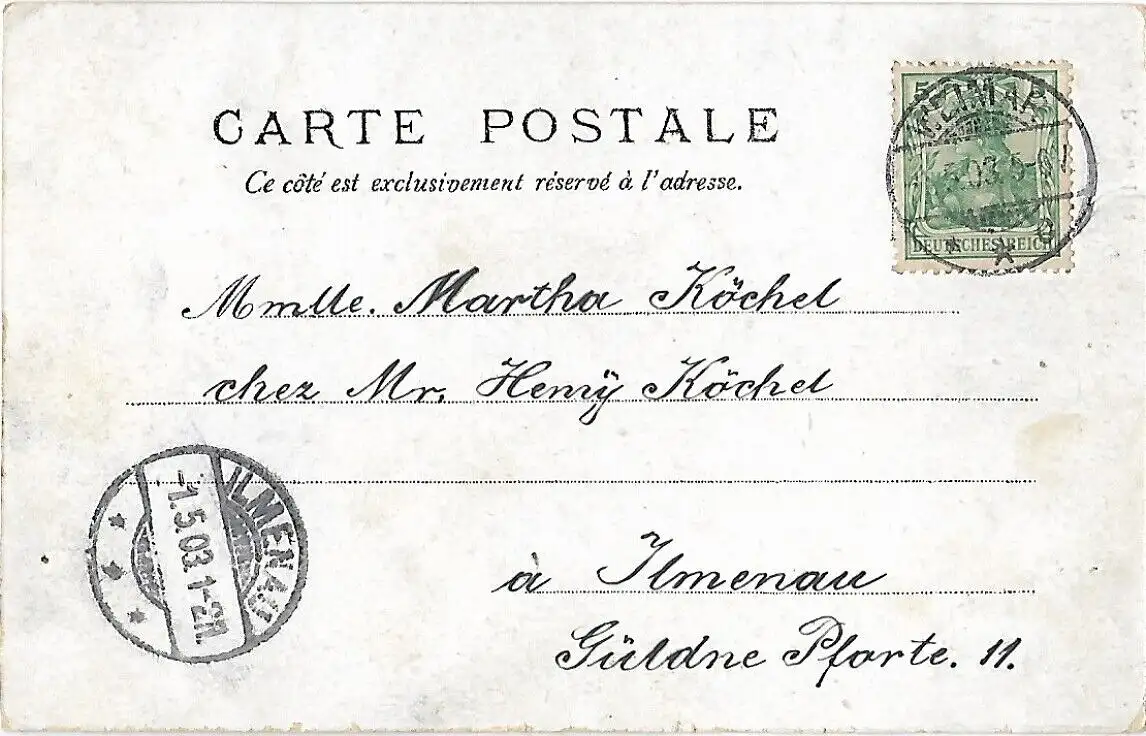 CARTE POSTALE
Ce côté est exclusivement réservé à l'adresse.
5
WEIMAR
03.
DEUTSCHES REICH
Mmlle. Martha Köchel
chez Mr. Henrÿ Köchel
ILMENAU
-1.5.03.1-2N.
à Ilmenau
Güldne Pforte. 11.